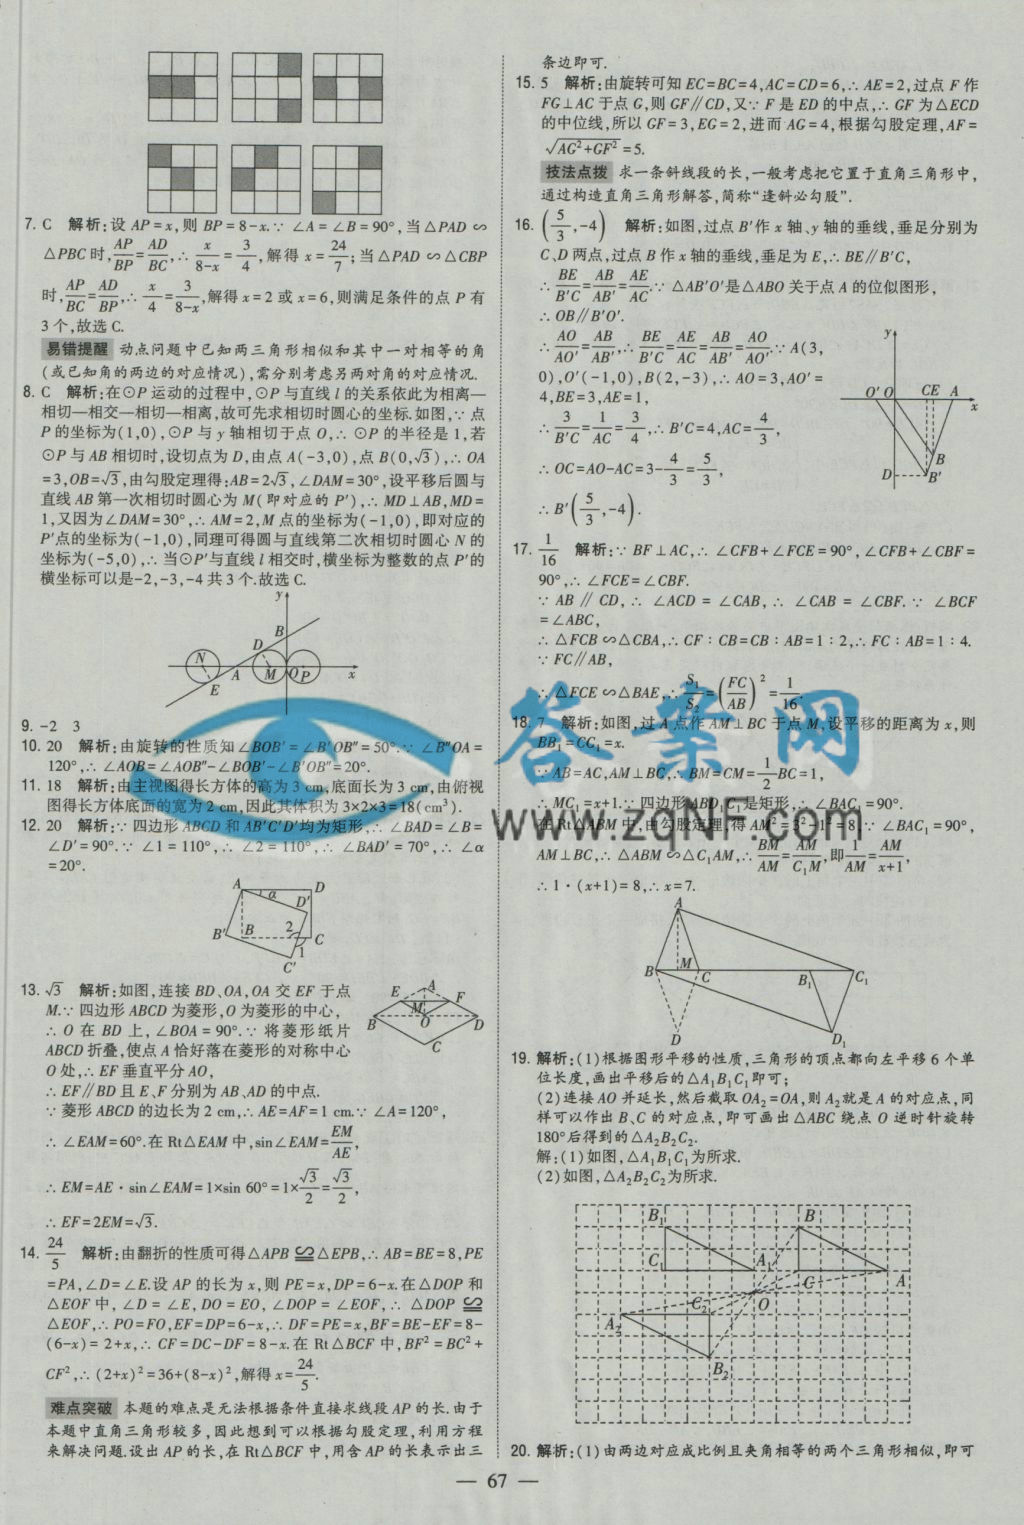 7. C 解析:设 AP=x,则 BP=8-x.∵ ∠A=∠B=90°,当△PAD∽
△PBC 时,AP/BP=AD/BC,∴ x/(8-x)=3/4,解得 x=24/7;当△PAD∽△CBP
时,AP/BC=AD/BP,∴ x/4=3/(8-x),解得 x=2 或 x=6,则满足条件的点 P 有
3 个,故选 C.
易错提醒 动点问题中已知两三角形相似和其中一对相等的角
(或已知角的两边的对应情况),需分别考虑另两对角的对应情况.
8. C 解析:在⊙P 运动的过程中,⊙P 与直线 l 的关系依此为相离—
相切—相交—相切—相离,故可先求相切时圆心的坐标.如图,∵ 点
P 的坐标为(1,0),⊙P 与 y 轴相切于点 O,∴ ⊙P 的半径是 1,若
⊙P 与 AB 相切时,设切点为 D,由点 A(-3,0),点 B(0,√3),∴ OA
=3,OB=√3,由勾股定理得:AB=2√3,∠DAM=30°,设平移后圆与
直线 AB 第一次相切时圆心为 M(即对应的 P′),∴ MD⊥AB,MD=
1,又因为∠DAM=30°,∴ AM=2,M 点的坐标为(-1,0),即对应的
P′点的坐标为(-1,0),同理可得圆与直线第二次相切时圆心 N 的
坐标为(-5,0),∴ 当⊙P′与直线 l 相交时,横坐标为整数的点 P′的
横坐标可以是-2,-3,-4 共 3 个.故选 C.
y
B
D
N
A
M
O
P
x
E
9. -2 3
10. 20 解析:由旋转的性质知∠BOB′=∠B′OB″=50°.∵ ∠B″OA=
120°,∴ ∠AOB=∠AOB″-∠BOB′-∠B′OB″=20°.
11. 18 解析:由主视图得长方体的高为 3 cm,底面长为 3 cm,由俯视
图得长方体底面的宽为 2 cm,因此其体积为 3×2×3=18(cm³).
12. 20 解析:∵ 四边形 ABCD 和 AB′C′D′均为矩形,∴ ∠BAD=∠B=
∠D′=90°.∵ ∠1=110°,∴ ∠2=110°,∴ ∠BAD′=70°,∴ ∠α
=20°.
A
D
α
D′
B′
B
2
C
1
C′
13. √3 解析:如图,连接 BD、OA,OA 交 EF 于点
M.∵ 四边形 ABCD 为菱形,O 为菱形的中心,
∴ O 在 BD 上,∠BOA=90°.∵ 将菱形纸片
ABCD 折叠,使点 A 恰好落在菱形的对称中心
O 处,∴ EF 垂直平分 AO,
∴ EF∥BD 且 E、F 分别为 AB、AD 的中点.
∵ 菱形 ABCD 的边长为 2 cm,∴ AE=AF=1 cm.∵ ∠A=120°,
∴ ∠EAM=60°.在 Rt△EAM 中,sin∠EAM=EM/AE,
∴ EM=AE·sin∠EAM=1×sin 60°=1×√3/2=√3/2,
∴ EF=2EM=√3.
A
E
F
M
B
O
D
C
14. 24/5 解析:由翻折的性质可得△APB≌△EPB,∴ AB=BE=8,PE
=PA,∠D=∠E.设 AP 的长为 x,则 PE=x,DP=6-x.在△DOP 和
△EOF 中,∠D=∠E,DO=EO,∠DOP=∠EOF,∴ △DOP≌
△EOF,∴ PO=FO,EF=DP=6-x,∴ DF=PE=x,BF=BE-EF=8-
(6-x)=2+x,∴ CF=DC-DF=8-x.在 Rt△BCF 中,BF²=BC²+
CF²,∴ (2+x)²=36+(8-x)²,解得 x=24/5.
难点突破 本题的难点是无法根据条件直接求线段 AP 的长.由于
本题中直角三角形较多,因此想到可以根据勾股定理,利用方程
来解决问题.设出 AP 的长,在 Rt△BCF 中,用含 AP 的长表示出三
条边即可.
15. 5 解析:由旋转可知 EC=BC=4,AC=CD=6,∴ AE=2,过点 F 作
FG⊥AC 于点 G,则 GF∥CD,又∵ F 是 ED 的中点,∴ GF 为△ECD
的中位线,所以 GF=3,EG=2,进而 AG=4,根据勾股定理,AF=
√(AG²+GF²)=5.
技法点拨 求一条斜线段的长,一般考虑把它置于直角三角形中,
通过构造直角三角形解答,简称“逢斜必勾股”.
16. (5/3,-4) 解析:如图,过点 B′作 x 轴、y 轴的垂线,垂足分别为
C、D 两点,过点 B 作 x 轴的垂线,垂足为 E,∴ BE∥B′C,
∴ BE/B′C=AB/AB′=AE/AC.∵ △AB′O′是△ABO 关于点 A 的位似图形,
∴ OB∥B′O′.
∴ AO/AO′=AB/AB′,∴ BE/B′C=AE/AC=AB/AB′=AO/AO′.∵ A(3,
0),O′(-1,0),B(2,-3),∴ AO=3,AO′=
4,BE=3,AE=1,
∴ 3/B′C=1/AC=3/4,∴ B′C=4,AC=4/3,
∴ OC=AO-AC=3-4/3=5/3,
∴ B′(5/3,-4).
y
O′ O
CE A
x
B
D
B′
17. 1/16 解析:∵ BF⊥AC,∴ ∠CFB+∠FCE=90°,∠CFB+∠CBF=
90°,∴ ∠FCE=∠CBF.
∵ AB∥CD,∴ ∠ACD=∠CAB,∴ ∠CAB=∠CBF.∵ ∠BCF
=∠ABC,
∴ △FCB∽△CBA,∴ CF:CB=CB:AB=1:2,∴ FC:AB=1:4.
∵ FC∥AB,
∴ △FCE∽△BAE,∴ S₁/S₂=(FC/AB)²=1/16.
18. 7 解析:如图,过 A 点作 AM⊥BC 于点 M,设平移的距离为 x,则
BB₁=CC₁=x.
∵ AB=AC,AM⊥BC,∴ BM=CM=1/2BC=1,
∴ MC₁=x+1.∵ 四边形 ABD₁C₁是矩形,∴ ∠BAC₁=90°.
在 Rt△ABM 中,由勾股定理,得 AM²=3²-1²=8.∵ ∠BAC₁=90°,
AM⊥BC,∴ △ABM∽△C₁AM,∴ BM/AM=AM/C₁M,即1/AM=AM/(x+1),
∴ 1·(x+1)=8,∴ x=7.
A
B
M
C
B₁
C₁
D
D₁
19. 解析:(1)根据图形平移的性质,三角形的顶点都向左平移 6 个单
位长度,画出平移后的△A₁B₁C₁即可;
(2)连接 AO 并延长,然后截取 OA₂=OA,则 A₂就是 A 的对应点,同
样可以作出 B、C 的对应点,即可画出△ABC 绕点 O 逆时针旋转
180°后得到的△A₂B₂C₂.
解:(1)如图,△A₁B₁C₁为所求.
(2)如图,△A₂B₂C₂为所求.
B₁
B
C₁
A₁
C
A
C₂
O
A₂
B₂
20. 解析:(1)由两边对应成比例且夹角相等的两个三角形相似,即可
— 67 —
答案网
www.zqNF.com